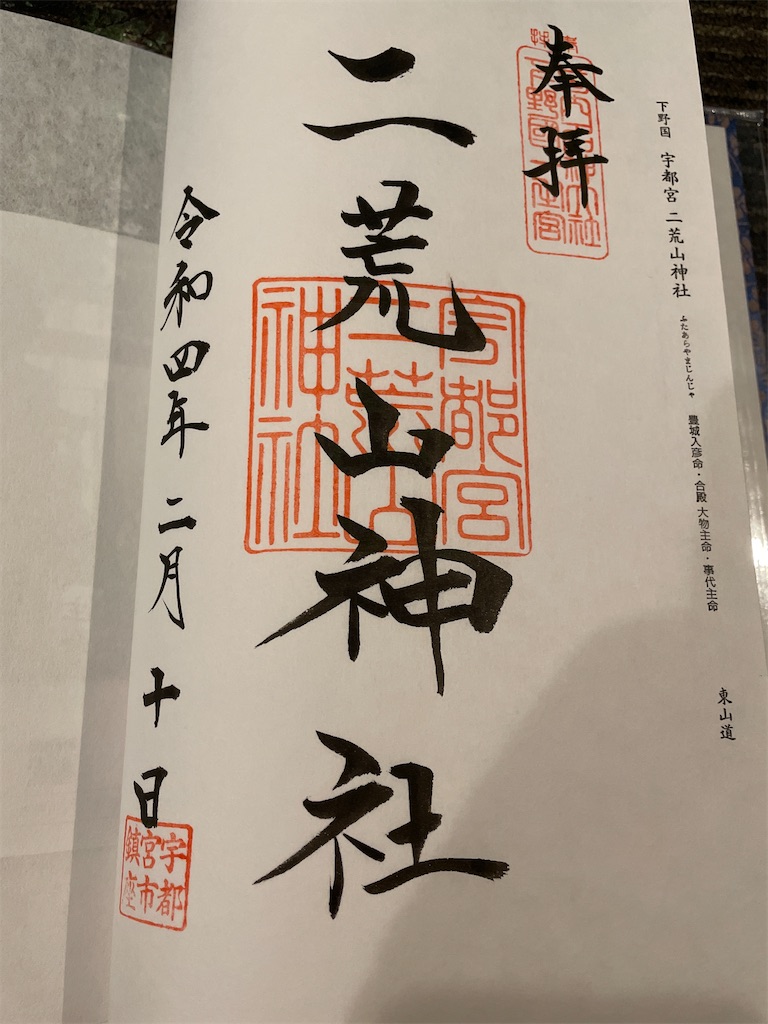 下野国 宇都宮 二荒山神社 ふたあらやまじんじゃ 豊城入彦命・合殿 大物主命・事代主命 東山道
奉拝
二荒山神社
宇都宮
二荒山
神社
令和四年 二月 十日
宇都
宮市
鎮座